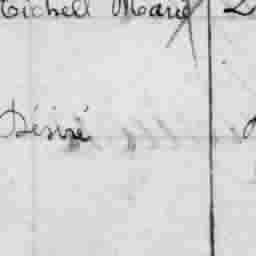 Michell Marie
Désiré